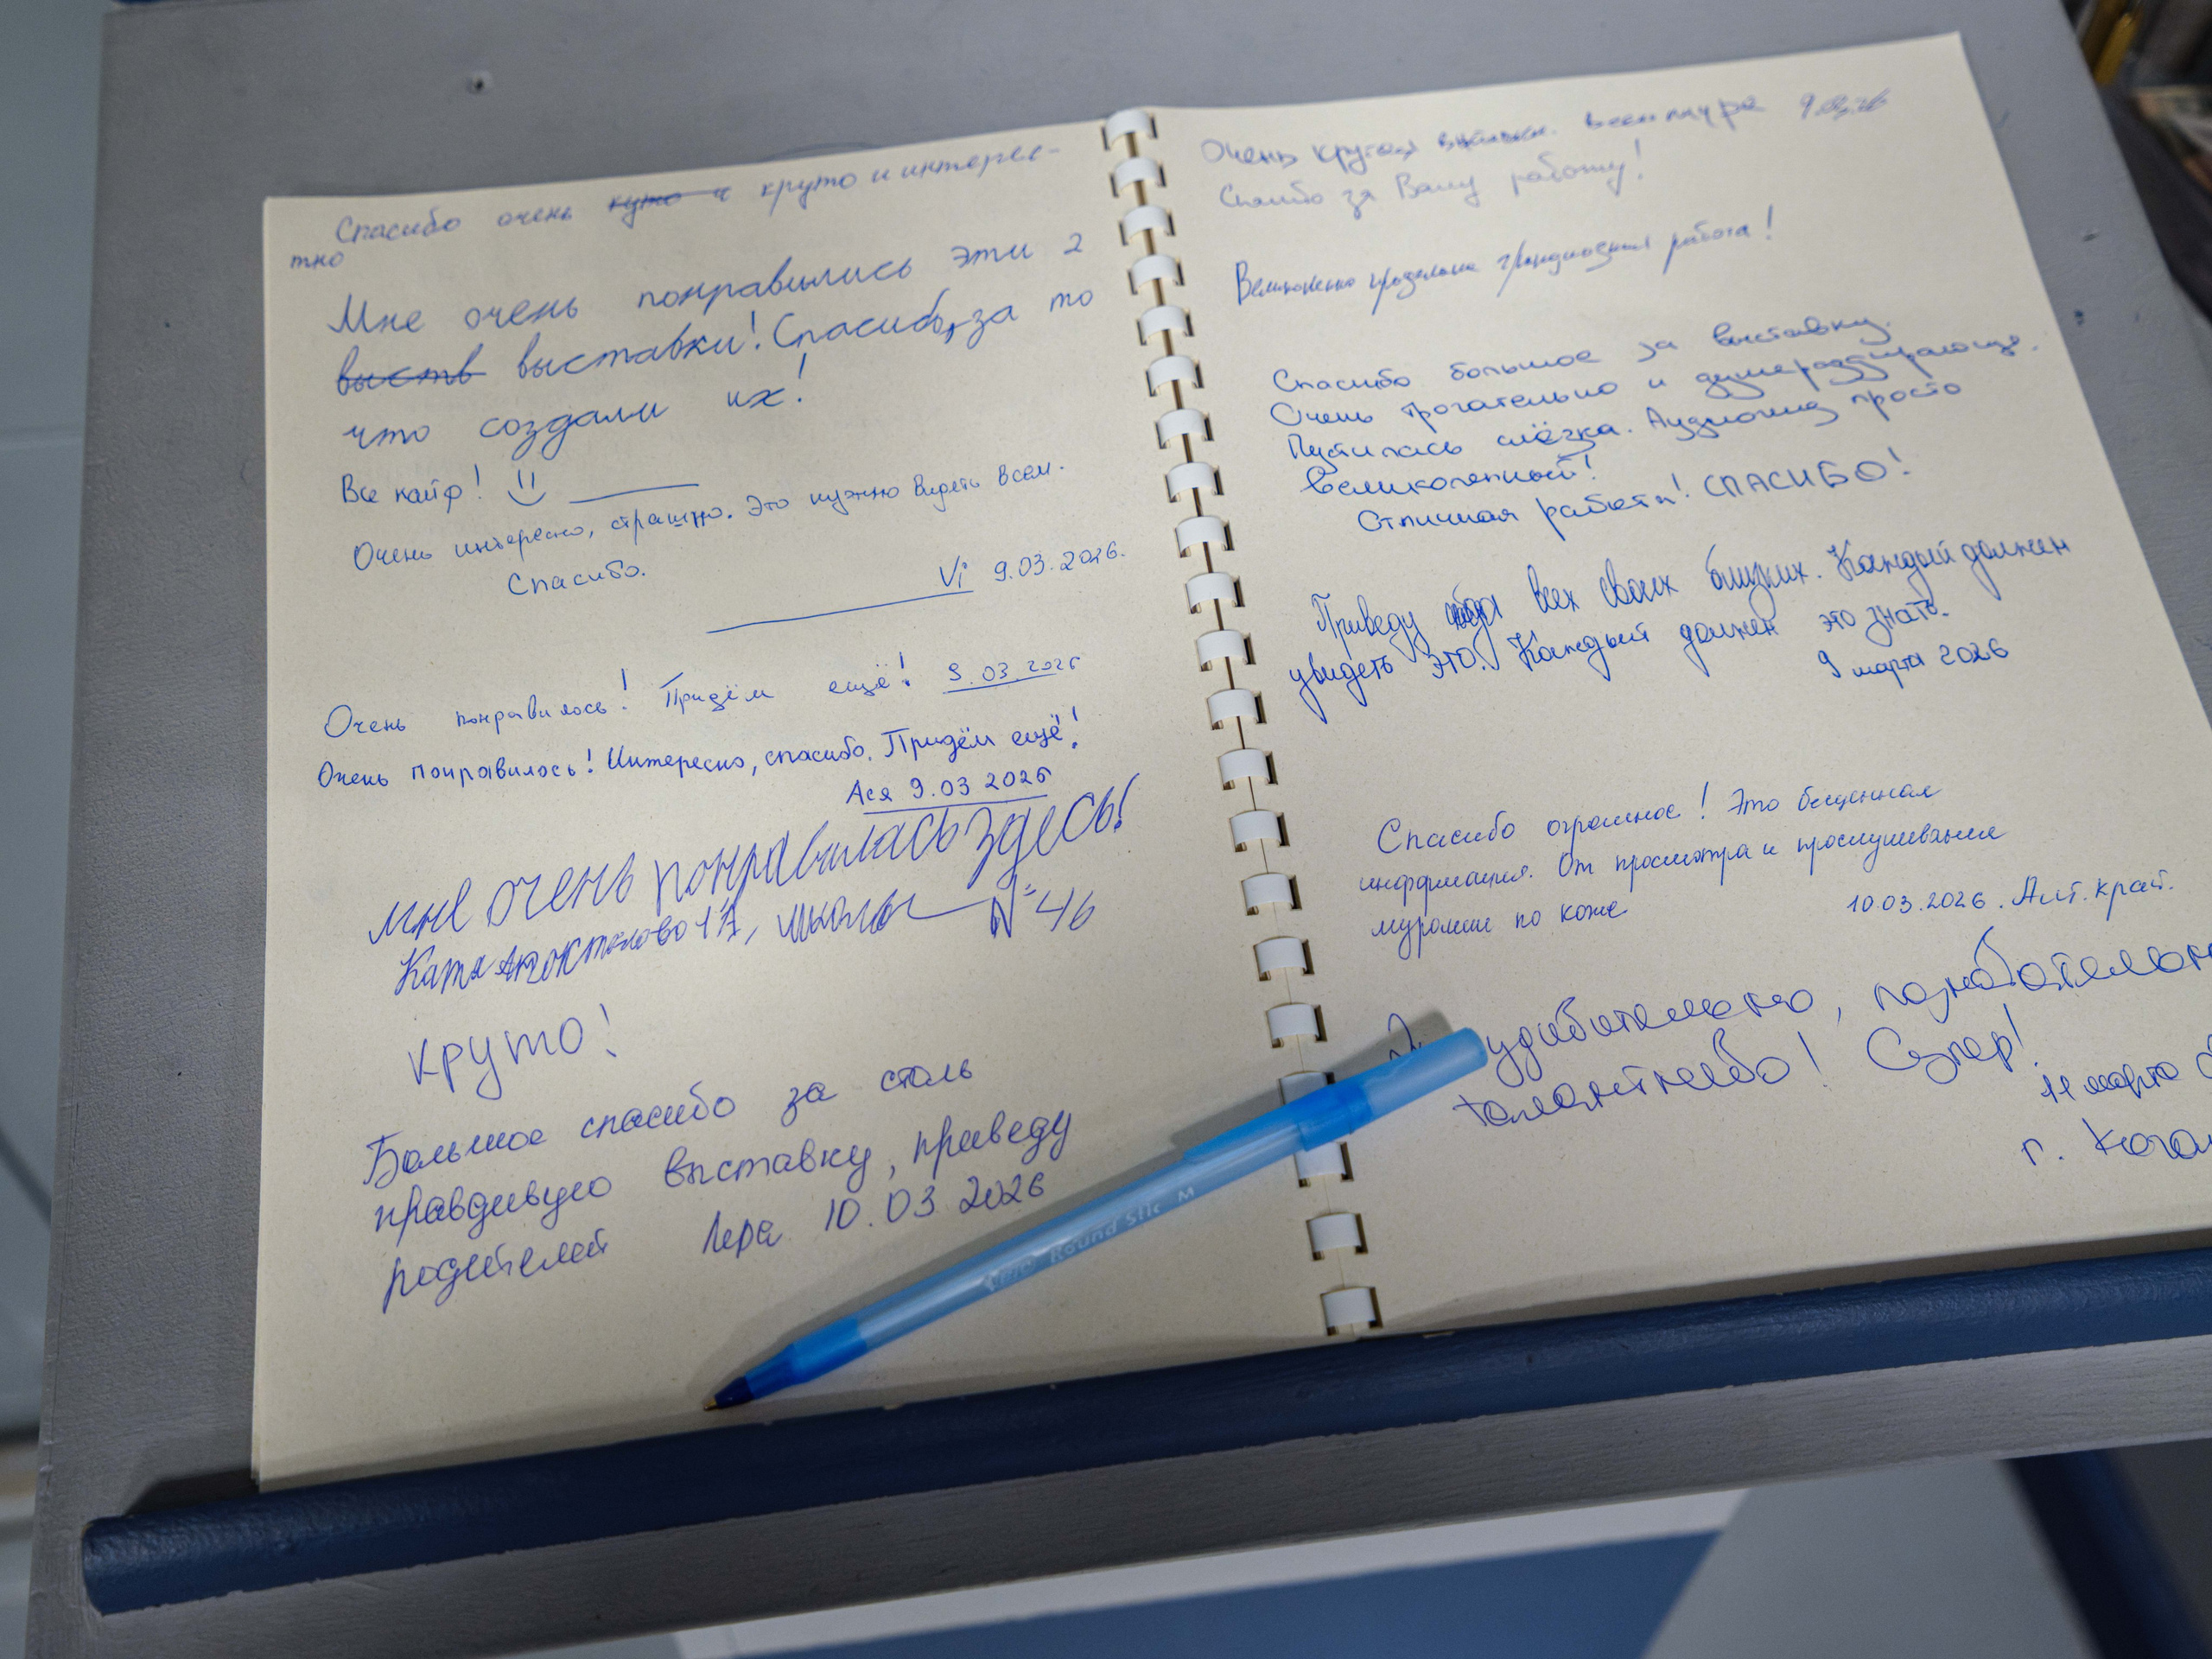 Спасибо очень куто и круто и интерес-
тно
Мне очень понравились эти 2
выств выставки! Спасибо, за то
что создали их!
Все кайф!
Очень интересно, страшно. Это нужно видеть всем.
Спасибо.
Vi 9.03.2026.
Очень понравилось! Придём ещё! 9.03.2026
Очень понравилось! Интересно, спасибо. Придём ещё!
Ася 9.03 2026
мне очень понравилась здесь!
Катя 1 А, школы № 46
круто!
Большое спасибо за столь
правдивую выставку, приведу
родителей Лера 10.03 2026
Round Stic M
Очень крутая 9.03.26
Спасибо за Вашу работу!
проделана грандиозная работа!
Спасибо большое за выставку.
Очень трогательно и душераздирающе.
Пустилась слёзка. Аудиогид просто
великолепный!
Отличная работа! СПАСИБО!
Приведу сюда всех своих близких. Каждый должен
увидеть это. Каждый должен это знать.
9 марта 2026
Спасибо огромное! Это бесценная
информация. От просмотра и прослушивания
мурашки по коже
10.03.2026. Алт. край.
удивительно, познавательн
талантливо! Супер!
11 марта
г.